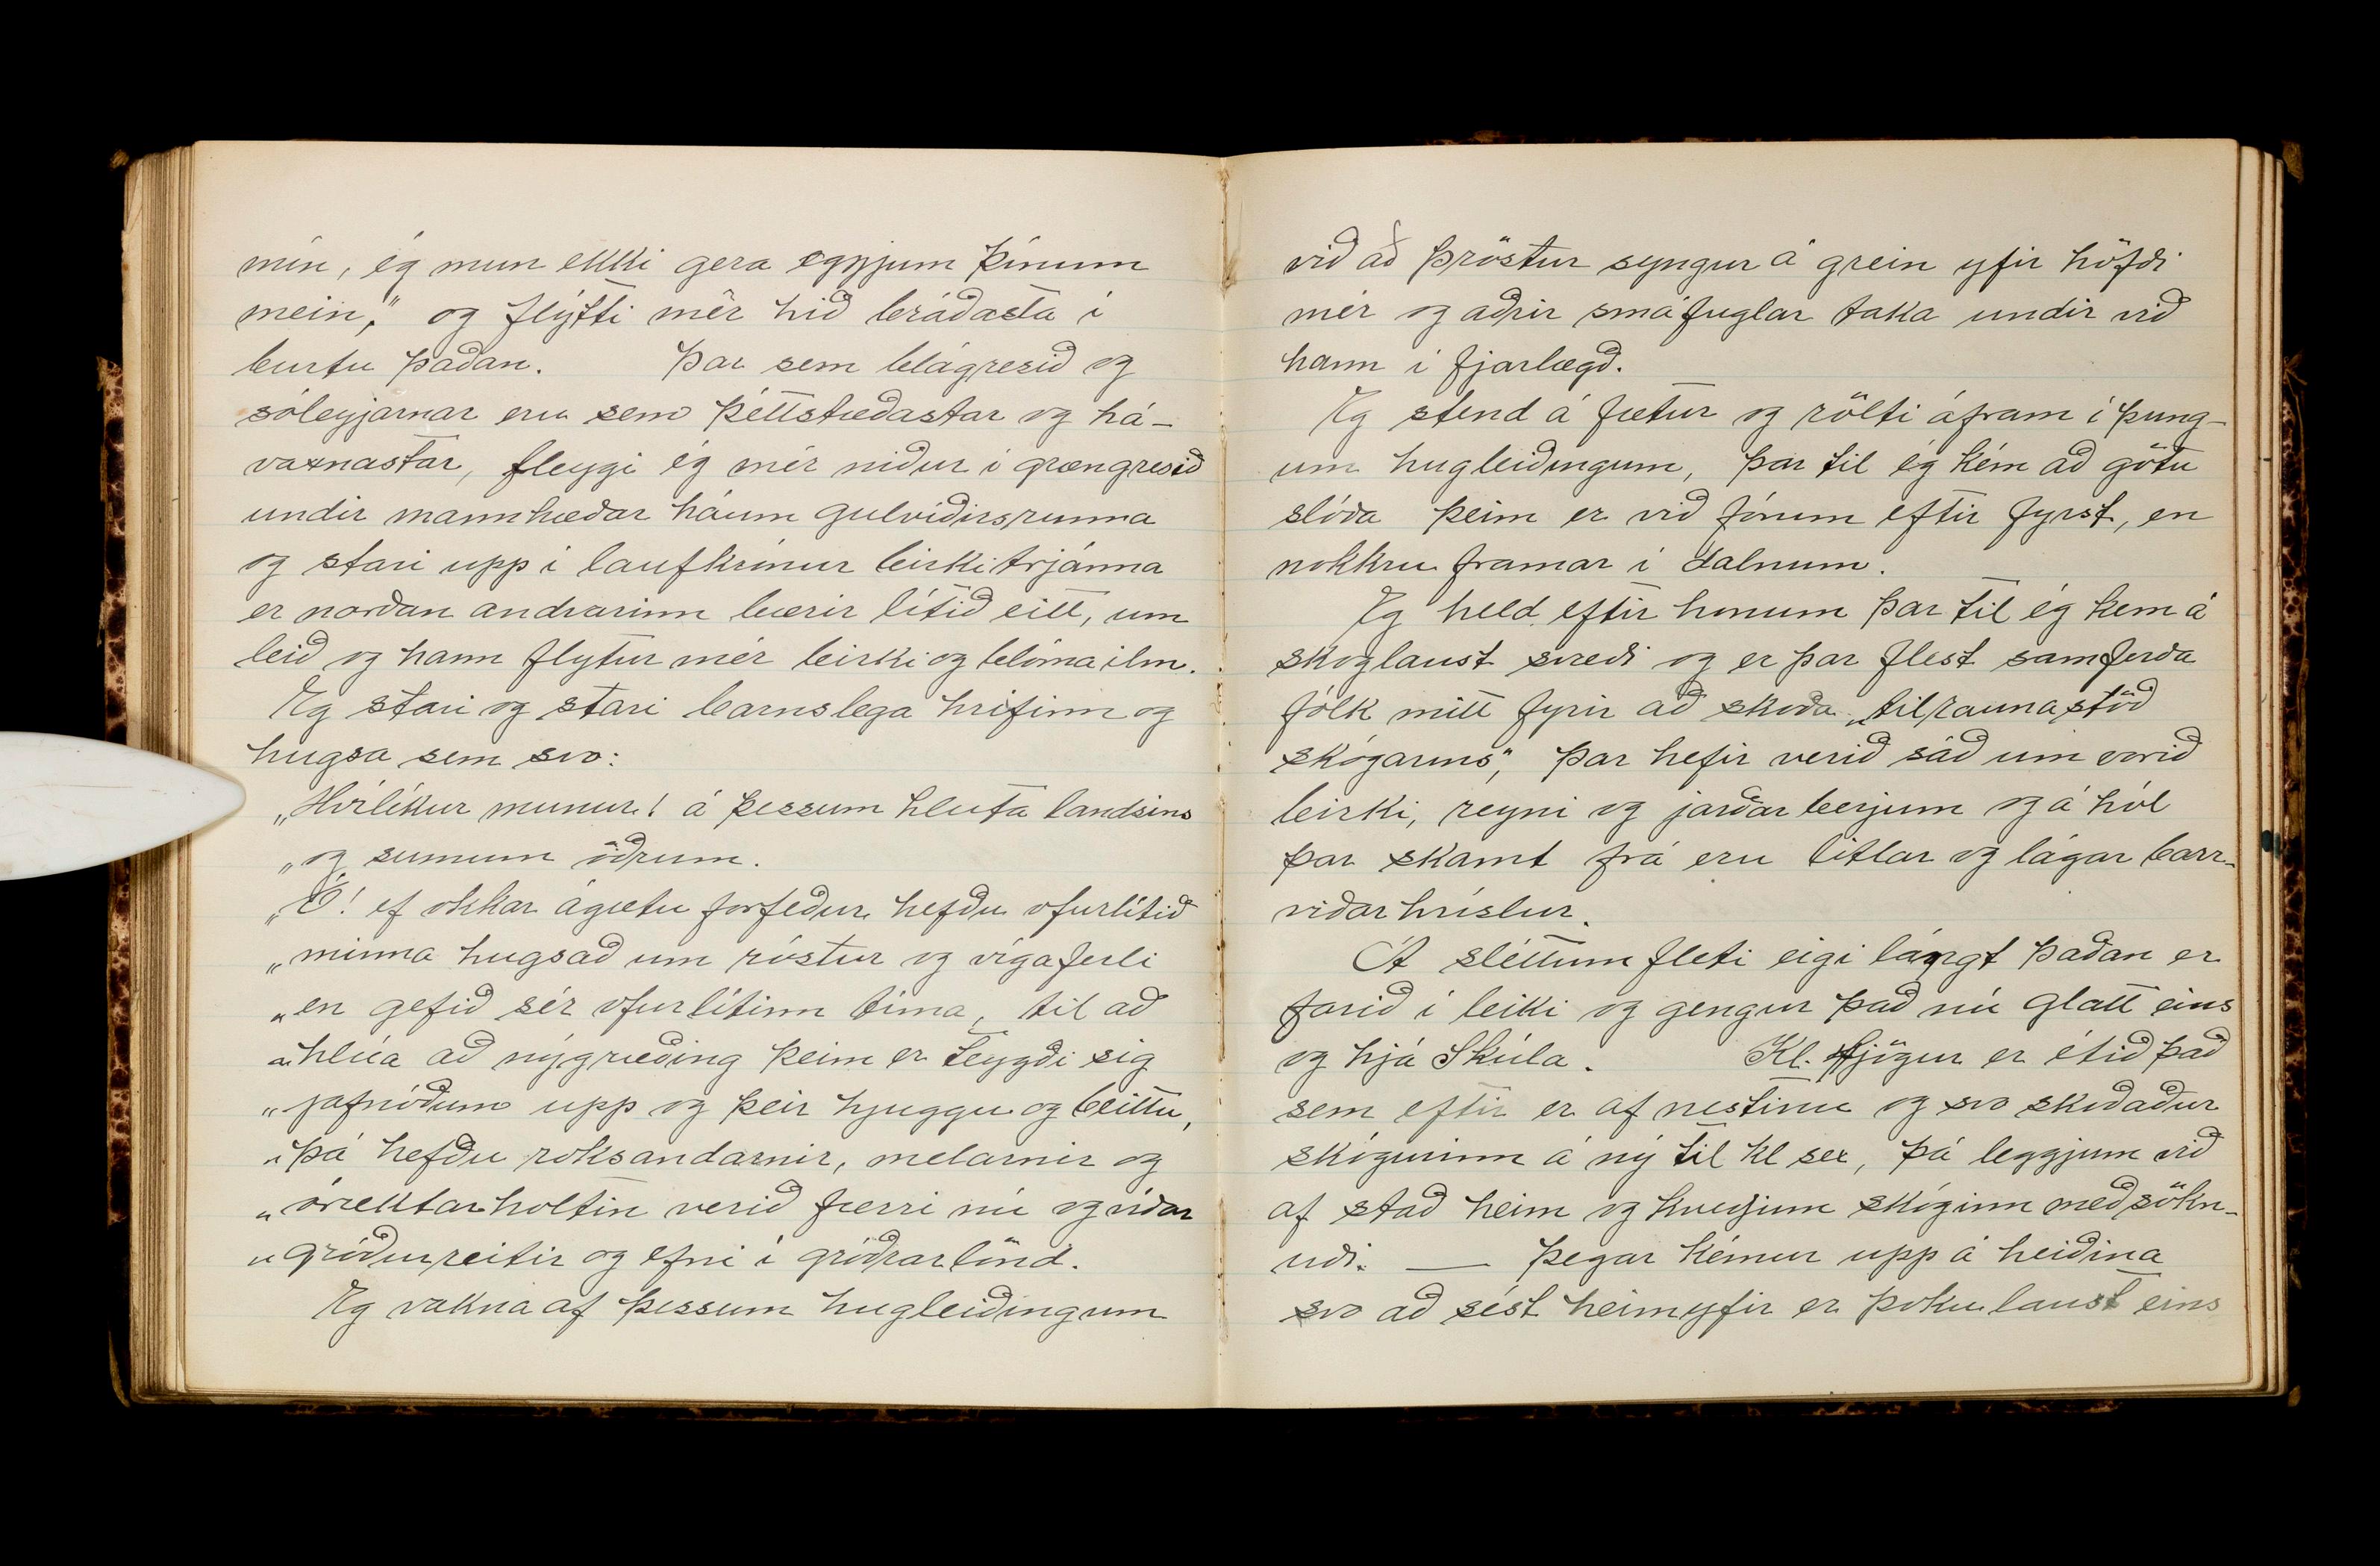 mín, ég mun ekki gera eggjum þínum
mein," og flýtti mér hið bráðasta í
burtu þaðan. Þar sem blágresið og
sóleyjarnar eru sem þéttstæðastar og há-
vaxnastar, fleygi ég mér niður í grængresið
undir mannhæðar háum gulvíðisrunna
og stari upp í laufkrónur birkitrjánna
er norðan andvarinn bærir lítið eitt, um
leið og hann flytur mér birki og blóma ilm.
Eg stari og stari barnslega hrifinn og
hugsa sem svo:
„Hvílíkur munur! á þessum hluta landsins
„og sumum öðrum.
„Ó! ef okkar ágætu forfeður hefðu ofurlítið
„minna hugsað um róstur og vígaferli
„en gefið sér ofurlítinn tíma, til að
„hlúa að nýgræðing þeim er teygði sig
„jafnóðum upp og þeir hjuggu og beittu,
„þá hefðu roksandarnir, melarnir og
„óræktarholtin verið færri nú og víðar
„gróðurreitir og efni í gróðrarlönd.
Eg vakna af þessum hugleiðingum
við að þröstur syngur á grein yfir höfði
mér og aðrir smáfuglar taka undir við
hann í fjarlægð.
Eg stend á fætur og rölti áfram í þung-
um hugleiðingum, þar til ég kém að götu
slóða þeim er við fórum eftir fyrst, en
nokkru framar í dalnum.
Eg held eftir honum þar til ég kem á
skoglaust svæði og er þar flest samferða
fólk mitt fyrir að skoða „tilraunastöð
skógarins", þar hefir verið sáð um vorið
birki, reyni og jarðarberjum og á hól
þar skamt frá eru litlar og lágar barr-
viðarhríslur.
Á sléttum fleti eigi lángt þaðan er
farið í leiki og gengur það nú glatt eins
og hjá Skúla. Kl. fjögur er étið það
sem eftir er af nestinu og svo skoðaður
skógurinn á ný til kl sex, þá leggjum við
af stað heim og kveðjum skóginn með sökn-
uði. — Þegar kémur upp á heiðina
svo að sést heimyfir er þokulaust eins